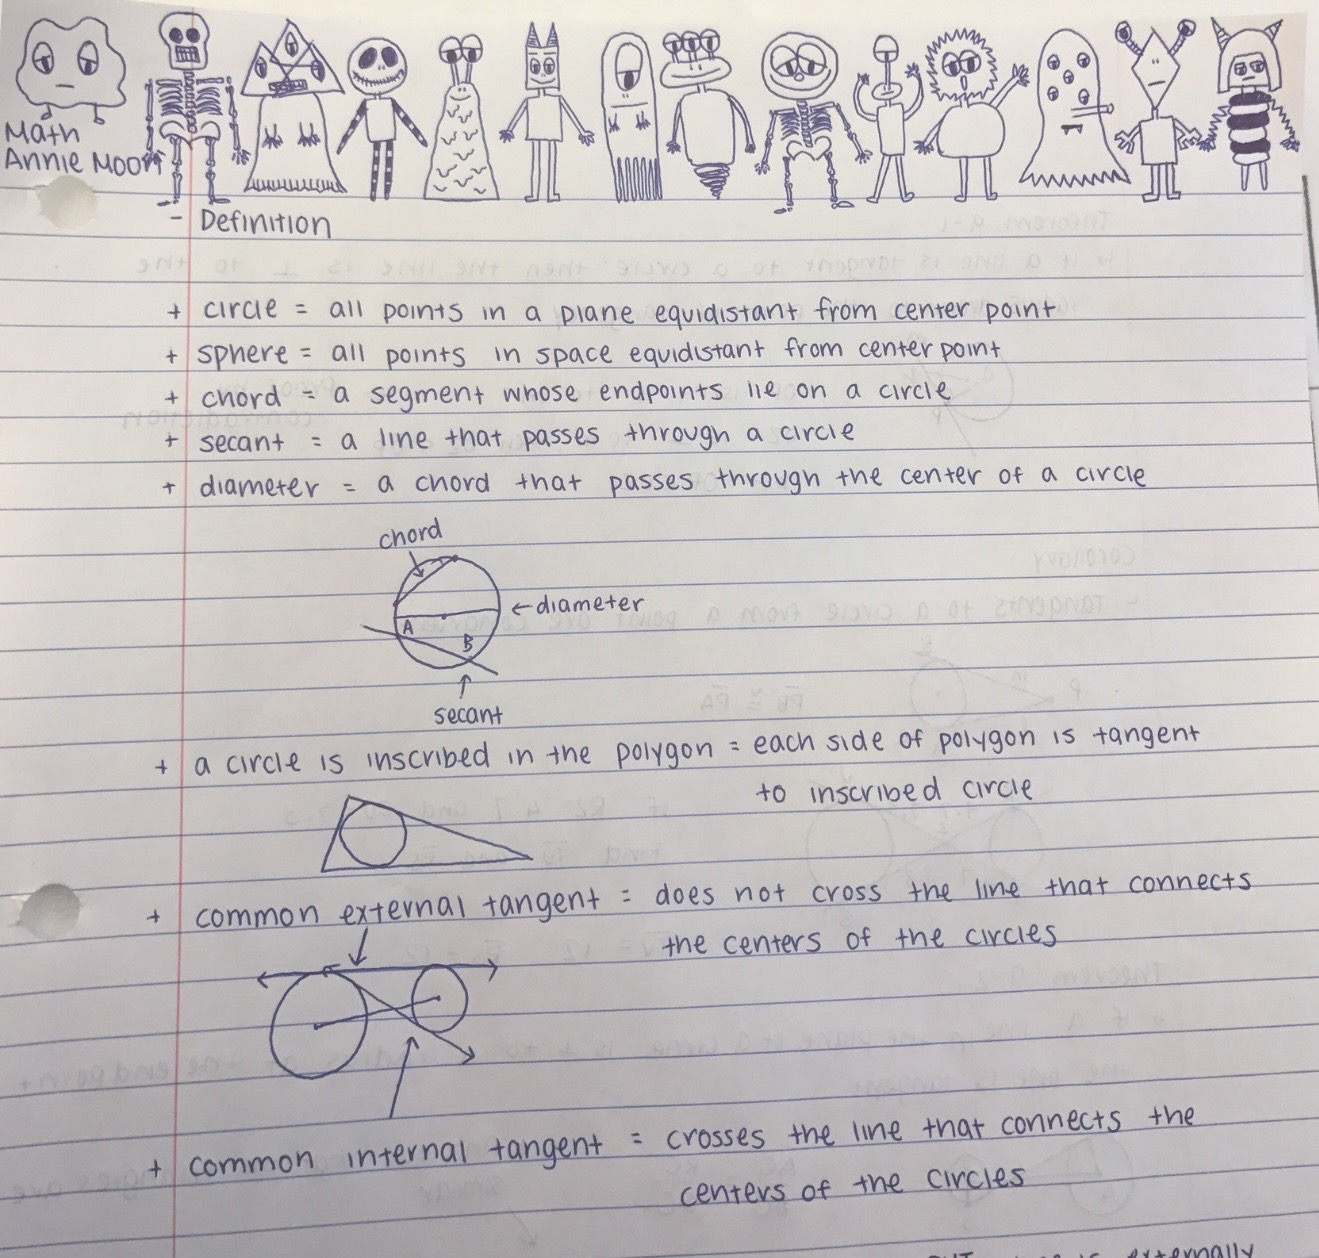 Math
Annie Moon
- Definition
+ circle = all points in a plane equidistant from center point
+ sphere = all points in space equidistant from center point
+ chord = a segment whose endpoints lie on a circle
+ secant = a line that passes through a circle
+ diameter = a chord that passes through the center of a circle
chord
←diameter
A
B
secant
+ a circle is inscribed in the polygon = each side of polygon is tangent
to inscribed circle
+ common external tangent = does not cross the line that connects
the centers of the circles
+ common internal tangent = crosses the line that connects the
centers of the circles
externally